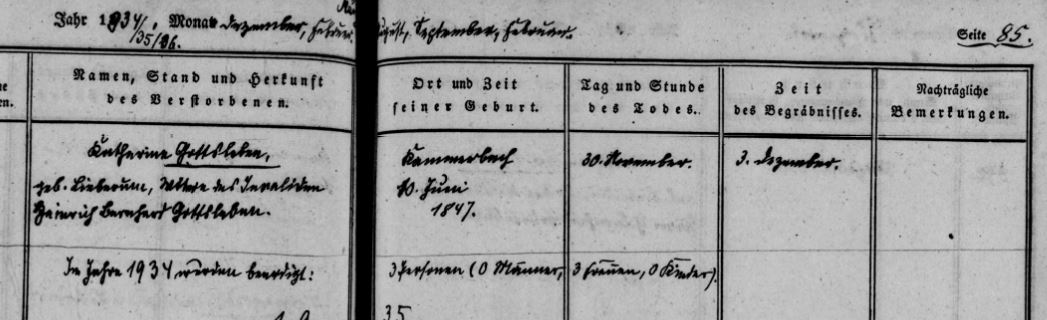 Jahr 1934/35/36. Monat Dezember, Februar, August, September, Februar. Seite 85.
Namen, Stand und Herkunft des Verstorbenen.
Ort und Zeit seiner Geburt.
Tag und Stunde des Todes.
Zeit des Begräbnisses.
Nachträgliche Bemerkungen.
Katharine Gottsleben,
geb. Lieberum, Witwe des Invaliden
Heinrich Bernhard Gottsleben.
Kammerbach
10. Juni
1847.
30. November.
3. Dezember.
Im Jahre 1934 wurden beerdigt: 3 Personen (0 Männer, 3 Frauen, 0 Kinder).
35